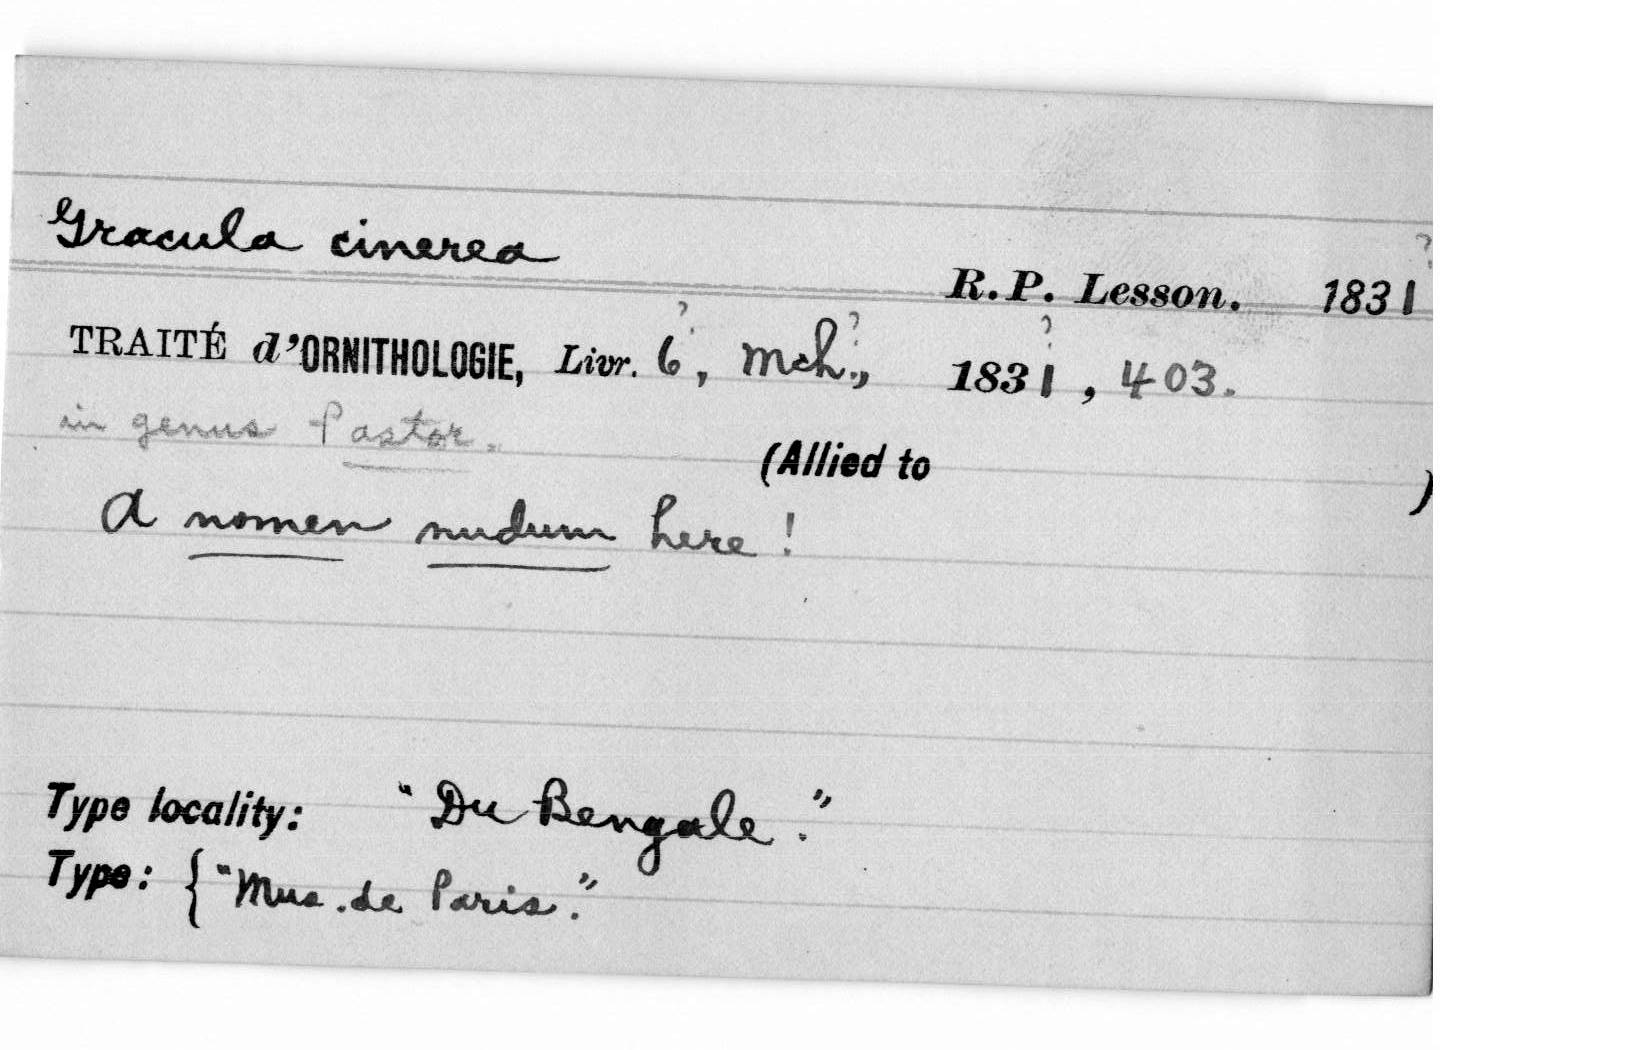 Gracula cinerea
R.P. Lesson. 1831?
TRAITÉ d'ORNITHOLOGIE, Livr. 6?, Mch.?, 1831?, 403.
in genus Pastor.
(Allied to )
A nomen nudum here!
Type locality: "Du Bengale."
Type: { "Mus. de Paris."